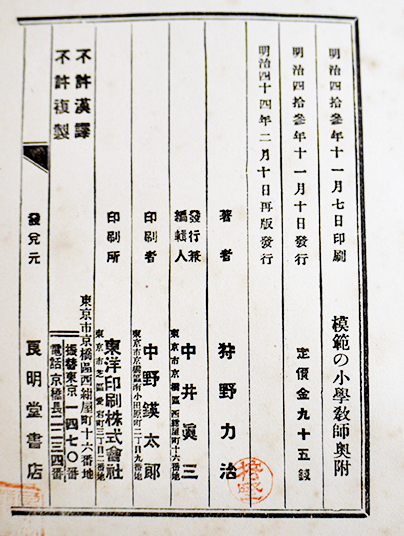 模範の小學教師奧附
明治四拾叁年十一月七日印刷
明治四拾叁年十一月十日發行
定價金九十五錢
明治四十四年二月十日再版發行
著者 狩野力治
發行兼編輯人 東京市京橋區西紺屋町十六番地 中井眞三
印刷者 東京市京橋區南小田原町二丁目九番地 中野鍈太郎
印刷所 東京市芝區愛宕町三丁目二番地 東洋印刷株式會社
不許漢譯
不許複製
發兌元
東京市京橋區西紺屋町十六番地
振替東京一四七〇番
電話京橋長二二三四番
良明堂書店